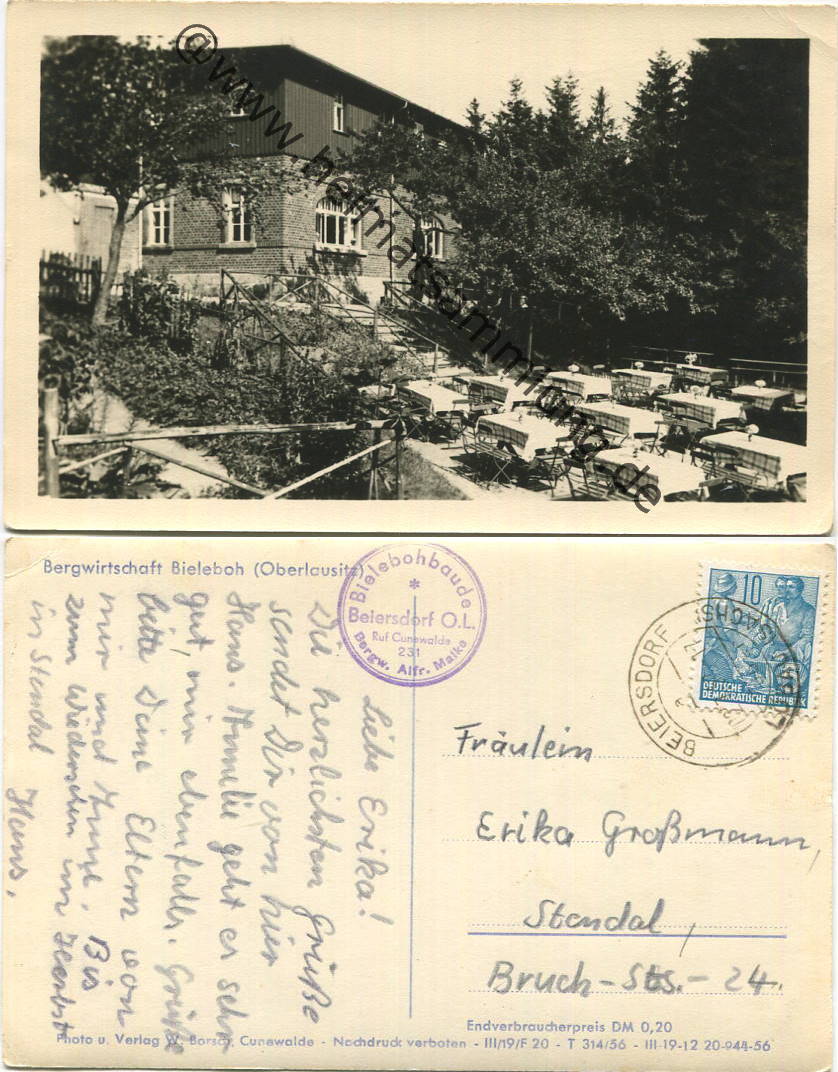 @www.heimatsammlung.de
Bergwirtschaft Bieleboh (Oberlausitz)
Bielebohbaude
*
Beiersdorf O.L.
Ruf Cunewalde
231
Bergw. Alfr. Maike
10
DEUTSCHE
DEMOKRATISCHE REPUBLIK
BEIERSDORF
Liebe Erika!
Die herzlichsten Grüße
sendet Dir von hier
Hans. Annelie geht es sehr
gut, mir ebenfalls. Grüße
bitte Deine Eltern von
mir und Bis
zum Wiedersehen im Herbst
in Stendal
Hans.
Fräulein
Erika Großmann,
Stendal,
Bruch-Sts.-24.
Endverbraucherpreis DM 0,20
Photo u. Verlag W. Borsch, Cunewalde - Nachdruck verboten - III/19/F 20 - T 314/56 - III-19-12 20-944-56